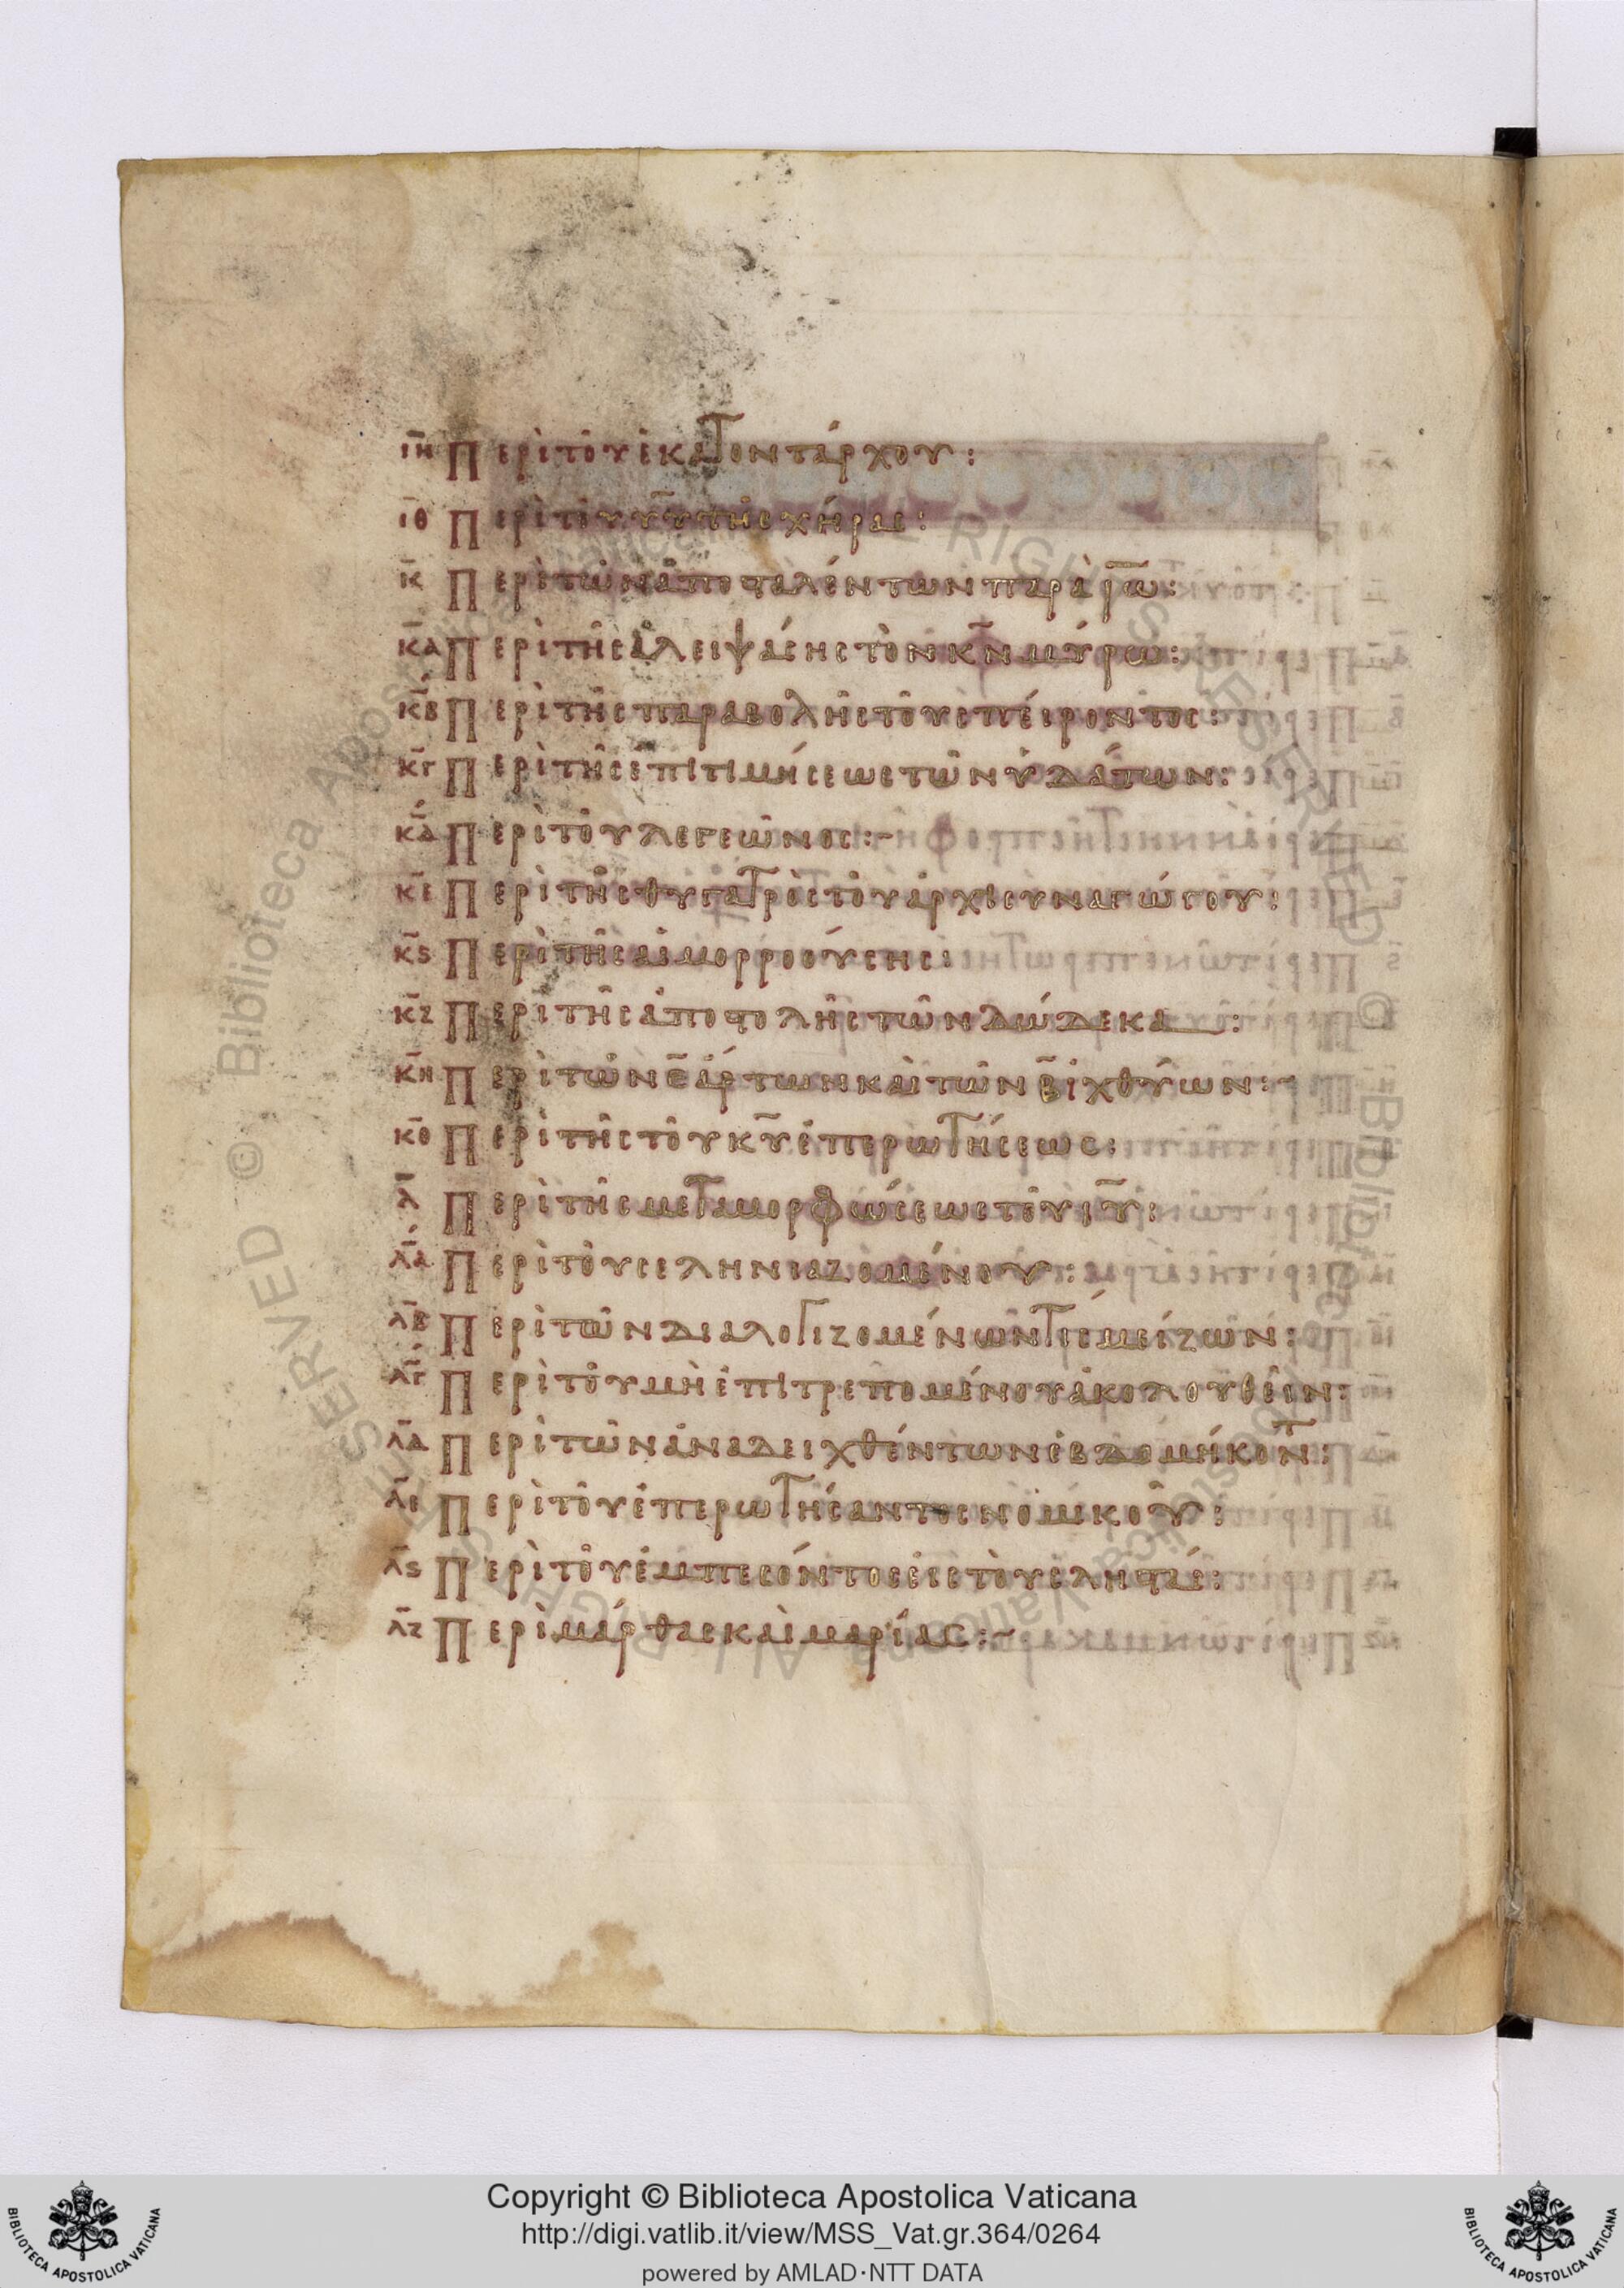 ιη Περὶ τοῦ ἑκατοντάρχου:
ιθ Περὶ τοῦ υῦ τῆς χήρας:
κ Περὶ τῶν ἀποσταλέντων παρὰ ιω:
κα Περὶ τῆς ἀλειψάσης τὸν κν μύρω:
κβ Περὶ τῆς παραβολῆς τοῦ σπείροντος:
κγ Περὶ τῆς ἐπιτιμήσεως τῶν ὑδάτων:
κδ Περὶ τοῦ λεγεῶνος:~
κε Περὶ τῆς θυγατρὸς τοῦ ἀρχισυναγώγου:
κς Περὶ τῆς αἱμορροούσης:
κζ Περὶ τῆς ἀποστολῆς τῶν δώδεκα:
κη Περὶ τῶν ε ἄρτων καὶ τῶν β ἰχθύων:~
κθ Περὶ τῆς τοῦ κυ ἐπερωτήσεως:
λ Περὶ τῆς μεταμορφώσεως τοῦ ιυ:
λα Περὶ τοῦ σεληνιαζομένου:
λβ Περὶ τῶν διαλογιζομένων τίς μείζων:
λγ Περὶ τοῦ μὴ ἐπιτρεπομένου ἀκολουθεῖν:
λδ Περὶ τῶν ἀναδειχθέντων ἑβδομήκοντ:
λε Περὶ τοῦ ἐπερωτήσαντος νομικοῦ:
λς Περὶ τοῦ ἐμπεσόντος εἰς τοὺς ληστάς:
λζ Περὶ μάρθας καὶ μαρίας:~
Copyright © Biblioteca Apostolica Vaticana
http://digi.vatlib.it/view/MSS_Vat.gr.364/0264
powered by AMLAD·NTT DATA